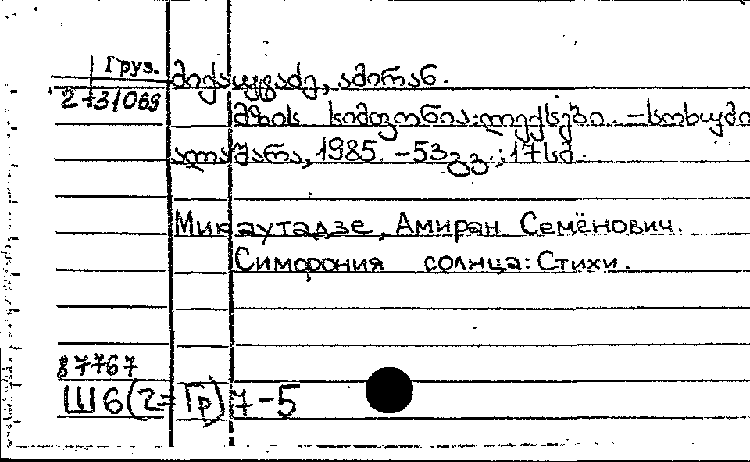 Груз.
2-31069
მიქაუტაძე, ამირან.
მზის სიმფონია: ლექსები. - სოხუმი
ალაშარა, 1985. - 53 გვ.; 17სმ.
Микаутадзе, Амиран Семёнович.
Симфония солнца: Стихи.
87767
Ш6(2=Гр)7-5